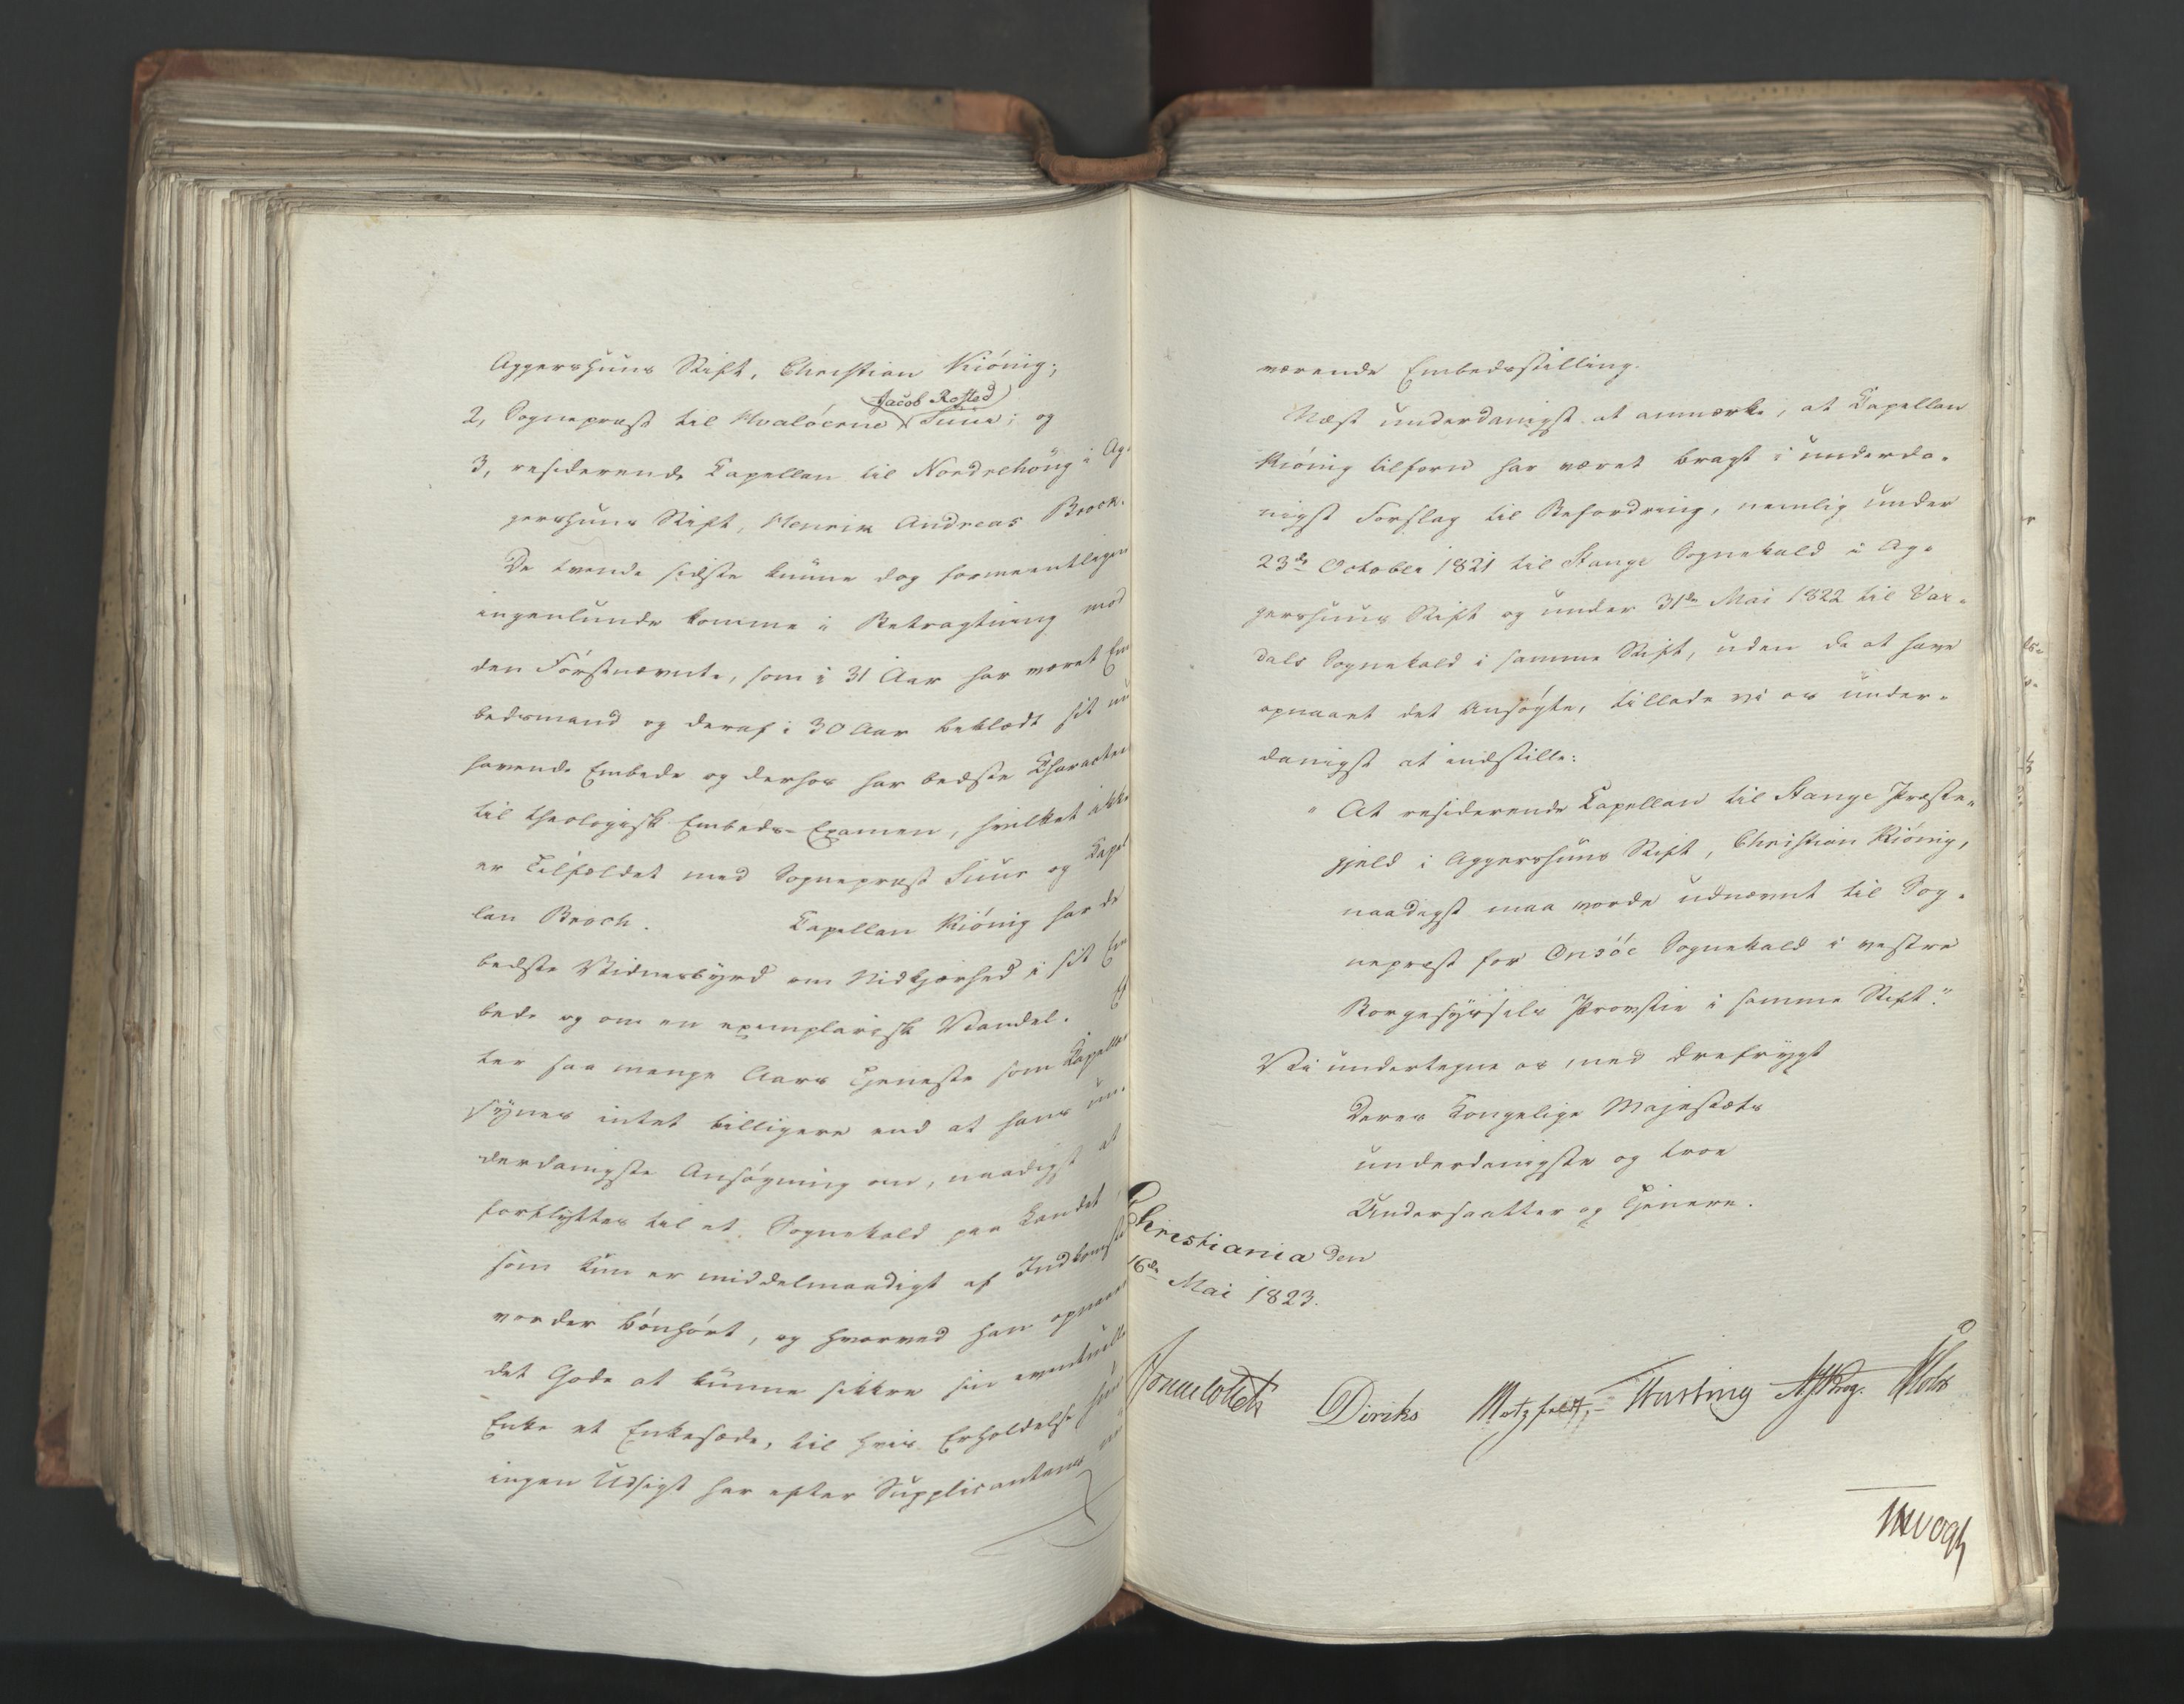 Aggershuus Stift, Christian Kiönig;
2, Sognepræst til Hvalöerne Jacob Rosted Suur; og
3, residerende Capellan til Nordrehoug i Ag-
gershuus Stift, Henrik Andreas Broch.
De tvende sidste kunne dog formeentligen
ingenlunde komme i Betragtning mod
den Förstnævnte, som i 31 Aar har været Em
bedsmand og deraf i 30 Aar beklædt sit nu
havende Embede og derhos har bedste Character
til theologisk Embeds-Examen, hvilket ikke
er Tilfældet med Sognepræst Suur og Capel
lan Broch. Capellan Kiönig har de
bedste Vidnesbyrd om Nidkjærhed i sit Em
bede og om en exemplarisk Vandel. Ef
ter saa mange Aars Tjeneste som Capellan
synes intet billigere end at hans un-
derdanigste Ansögning om, naadigst at
forflyttes til et Sognekald paa Landet
som kun er middelmaadigt af Indkomster
vorder bönhört, og hvorved han opnaaer
det Gode at kunne sikkre sin eventuelle
Enke et Enkesæde, til hvis Erholdelse hun
ingen Udsigt har efter Supplicantens nu
værende Embedsstilling.
Næst underdanigst at anmærke, at Capellan
Kiönig tilforn har været bragt i underda-
nigst Forslag til Befordring, nemlig under
23de October 1821 til Stange Sognekald i Ag-
gershuus Stift og under 31de Mai 1822 til Var-
dals Sognekald i samme Stift, uden da at have
opnaaet det Ansögte, tillade vi os under-
danigst at indstille:
"At residerende Capellan til Stange Præste-
gjeld i Aggershuus Stift, Christian Kiönig,
naadigst maa vorde udnævnt til Sog-
nepræst for Onsöe Sognekald i vestre
Borgesyssels Provstie i samme Stift."
Vi undertegne os med dyb frygt
Deres Kongelige Majestæts
underdanigste og troe
Undersaatter og Tjenere.
Christiania den
16de Mai 1823.
Jonas Collett Diriks Motzfeldt Fasting Krog. Holst
Vogt